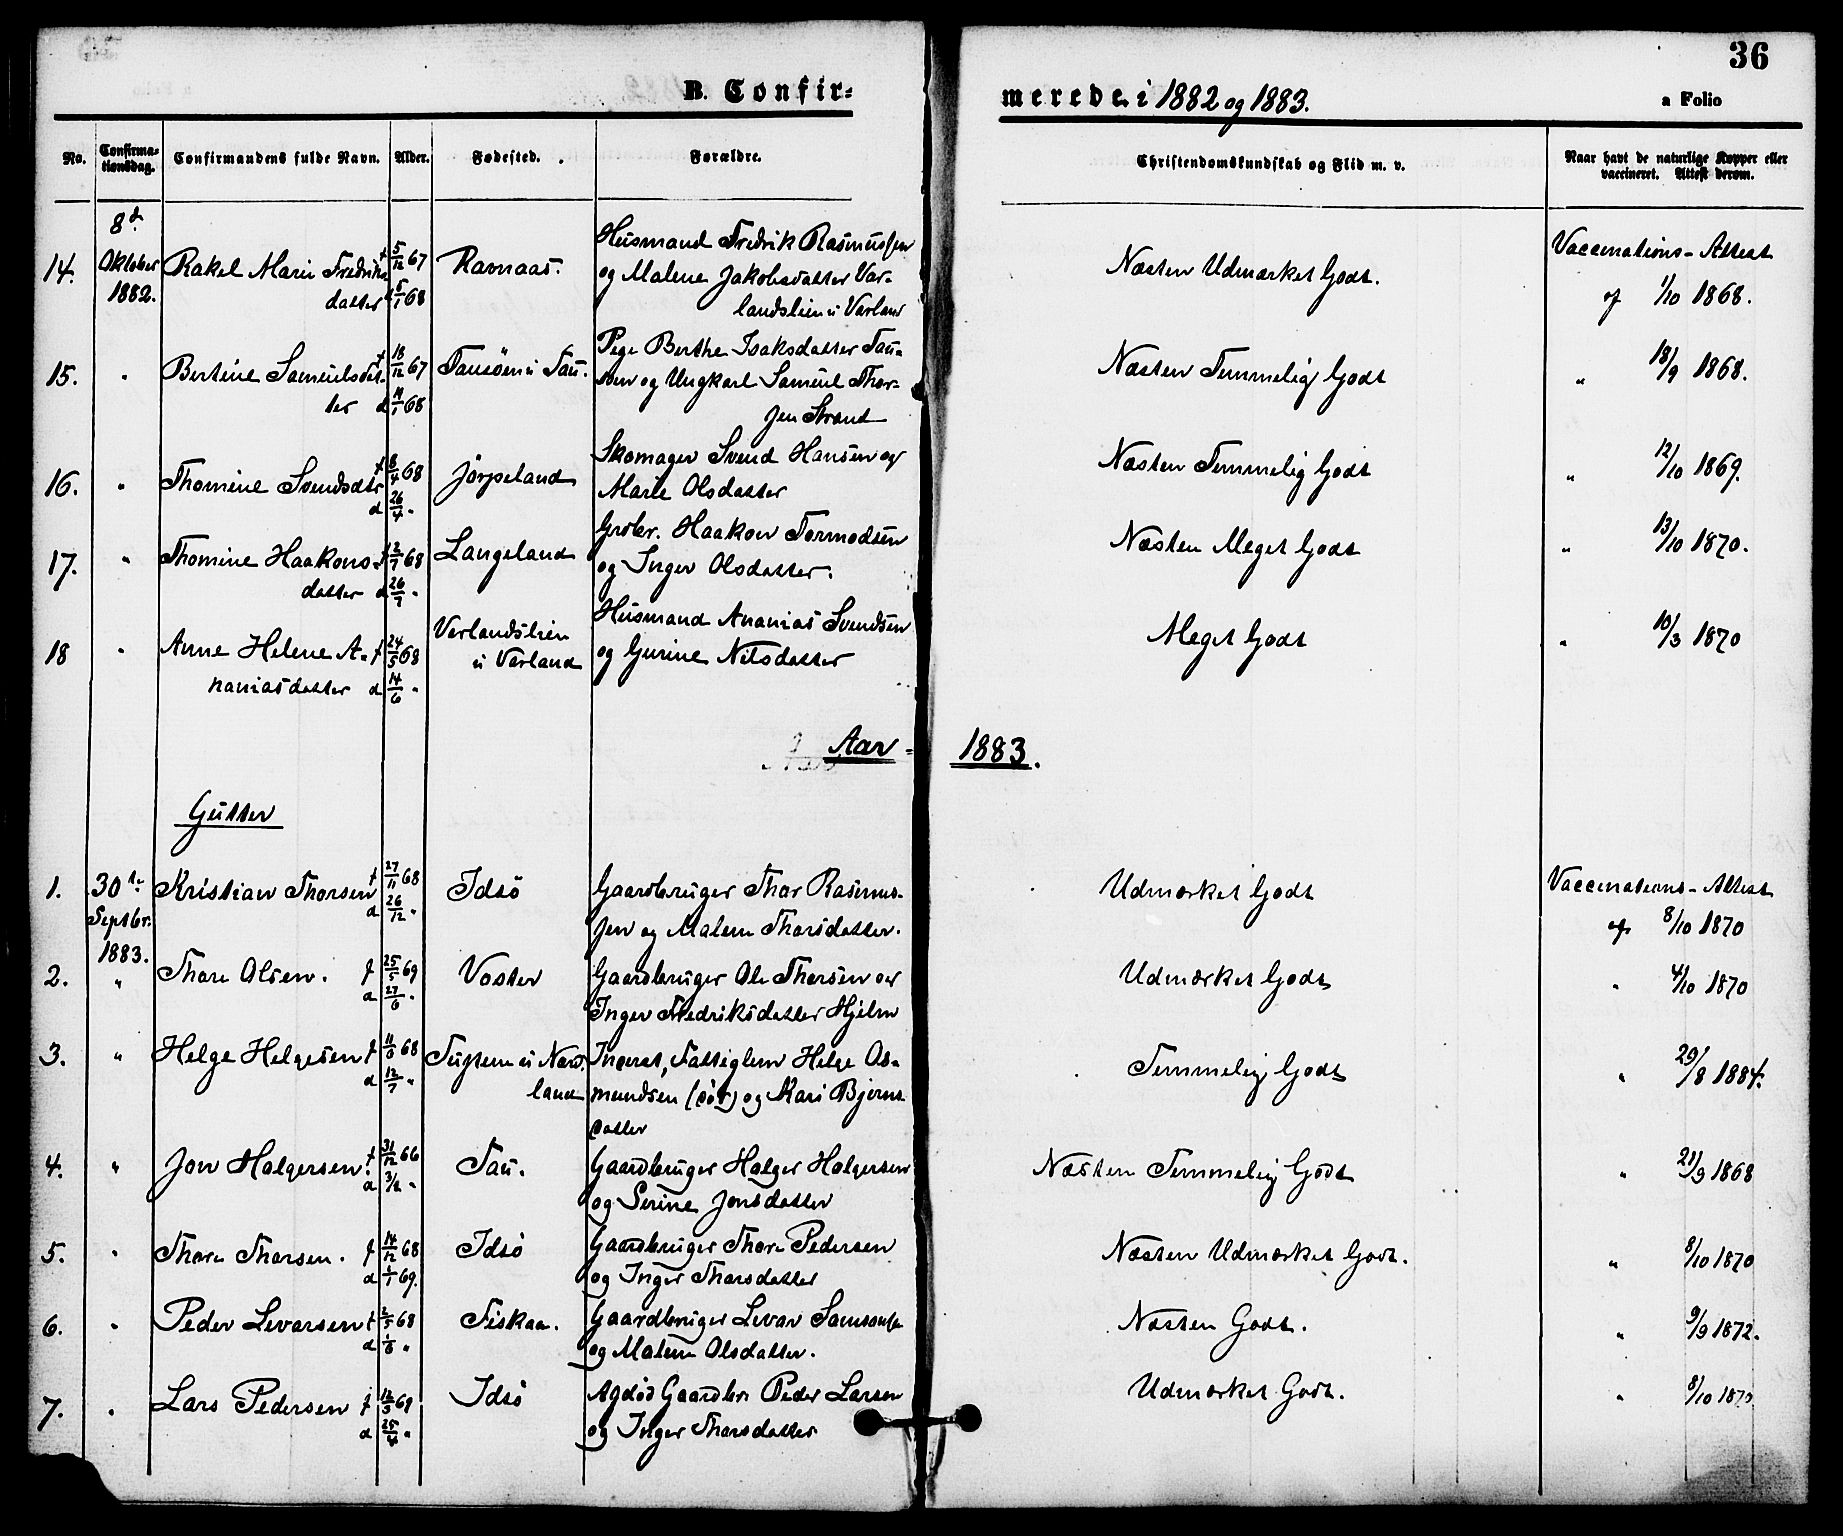 36
B. Confir=
merede i 1882 og 1883.
a Folio
No.
Confirma-
tionsdag.
Confirmandens fulde Navn.
Alder.
Fødested.
Forældre.
Christendomskundskab og Flid m. v.
Naar havt de naturlige Kopper eller
vaccineret. Attest derom.
8d.
Oktober
1882.
14.
Rakel Marie Fredriks
datter
f 5/12 67
d 5/1 68
Ravnaas.
Husmand Fredrik Rasmussen
og Malene Jakobsdatter Var-
landslien u Varland
Næsten Udmærket Godt.
Vaccinations-Attest
af 1/10 1868.
15.
"
Bertine Samuelsdat-
ter
f 18/12 67
d 1/68
Tausøen u Tau.
Pige Berthe Isaksdatter Tau-
søen og Ungkarl Samuel Thor-
sen Strand
Næsten Temmelig Godt
" 18/9 1868.
16.
"
Thomine Svendsdtr
f 8/4 68
d 26/4 "
Jørpeland
Skomager Svend Hansen og
Marie Olsdatter
Næsten Temmelig Godt
" 12/10 1869.
17.
"
Thomine Haakons-
datter
f 2/7 68
d 26/7 "
Langeland
Grdbr. Haakon Tormodsen
og Inger Olsdatter.
Næsten Meget Godt
" 13/10 1870.
18
"
Anne Helene A-
naniasdatter
f 24/5 68
d 14/6 "
Varlandslien
u Varland
Husmand Ananias Svendsen
og Gurine Nilsdatter
Meget Godt
" 10/3 1870
Aar - 1883.
Gutter
1.
30te
Septbr.
1883.
Kristian Thorsen
f 27/11 68
d 26/12 "
Idsø
Gaardbruger Thor Rasmus-
sen og Malene Thorsdatter.
Udmærket Godt
Vaccinations-Attest
af 8/10 1870
2.
"
Thore Olsen.
f 25/5 69
d 27/6 "
Voster
Gaardbruger Ole Thorsen og
Inger Fredriksdatter Hjelm
Udmærket Godt
" 4/10 1870
3.
"
Helge Helgesen
f 11/6 68
d 12/7 "
u Nord-
land
Inderst, Fattiglem Helge Os-
mundsen (død) og Kari Bjørns-
datter
Temmelig Godt
" 29/8 1884.
4.
"
Jon Holgersen.
f 31/12 66
d 3/2 "
Tau.
Gaardbruger Holger Holgersen
og Serine Jonsdatter
Næsten Temmelig Godt
" 21/9 1868
5.
"
Thore Thorsen.
f 14/12 68
d 1/1 69.
Idsø
Gaardbruger Thore Pedersen
og Inger Thorsdatter
Næsten Udmærket Godt.
" 8/10 1870
6.
"
Peder Levarsen
f 2/5 68
d 1/6 "
Fiskaa.
Gaardbruger Levar Samsonsen
og Malene Olsdatter.
Næsten Godt.
" 9/9 1872.
7.
"
Lars Pedersen
f 12/3 69
d 25/4 "
Idsø
Afdød Gaardbr. Peder Larsen
og Inger Thorsdatter
Udmærket Godt.
" 8/10 1870